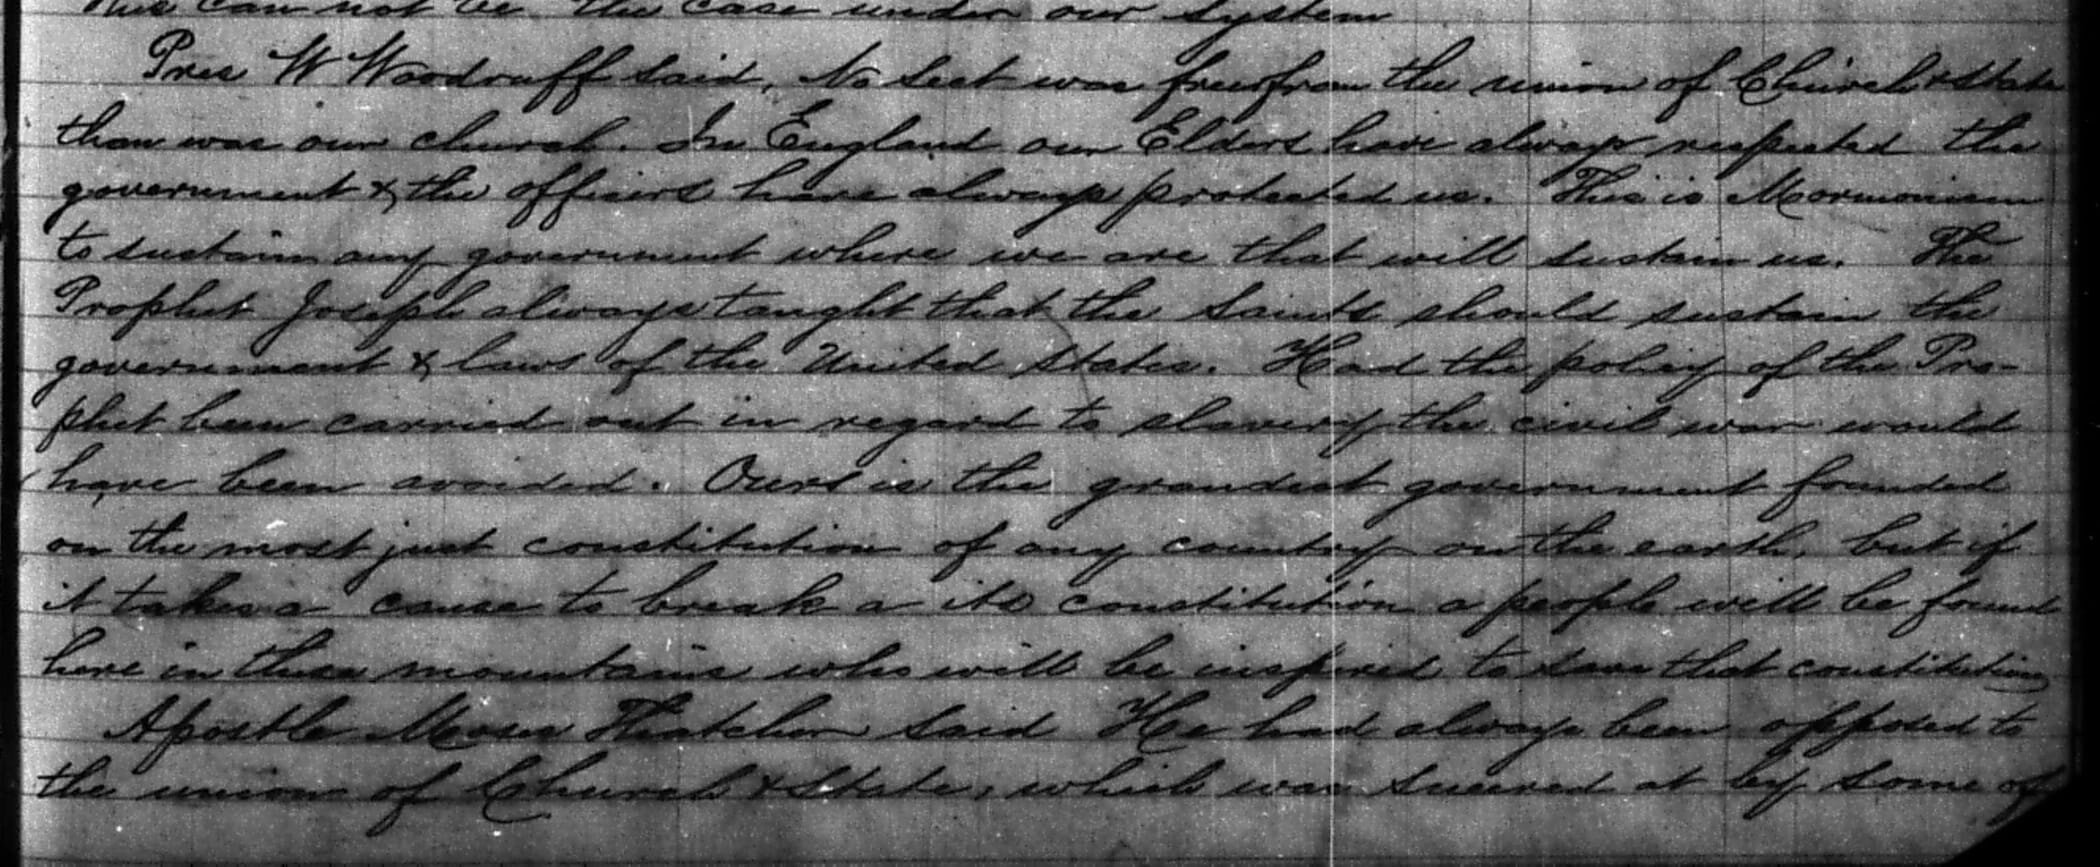 This can not be the case under our system
Pres W Woodruff said, No sect was freer from the union of Church & State
than was our church. In England our Elders have always respected the
government & the officers have always protected us. This is Mormonism
to sustain any government where we are that will sustain us. The
Prophet Joseph always taught that the Saints should sustain the
government & laws of the United States. Had the policy of the Pro-
phet been carried out in regard to slavery the civil war would
have been avoided. Ours is the grandest government founded
on the most just constitution of any country on the earth, but if
it takes a cause to break a its constitution a people will be found
here in these mountains who will be inspired to save that constitution
Apostle Moses Thatcher said He had always been opposed to
the union of Church & State, which was sneered at by some of